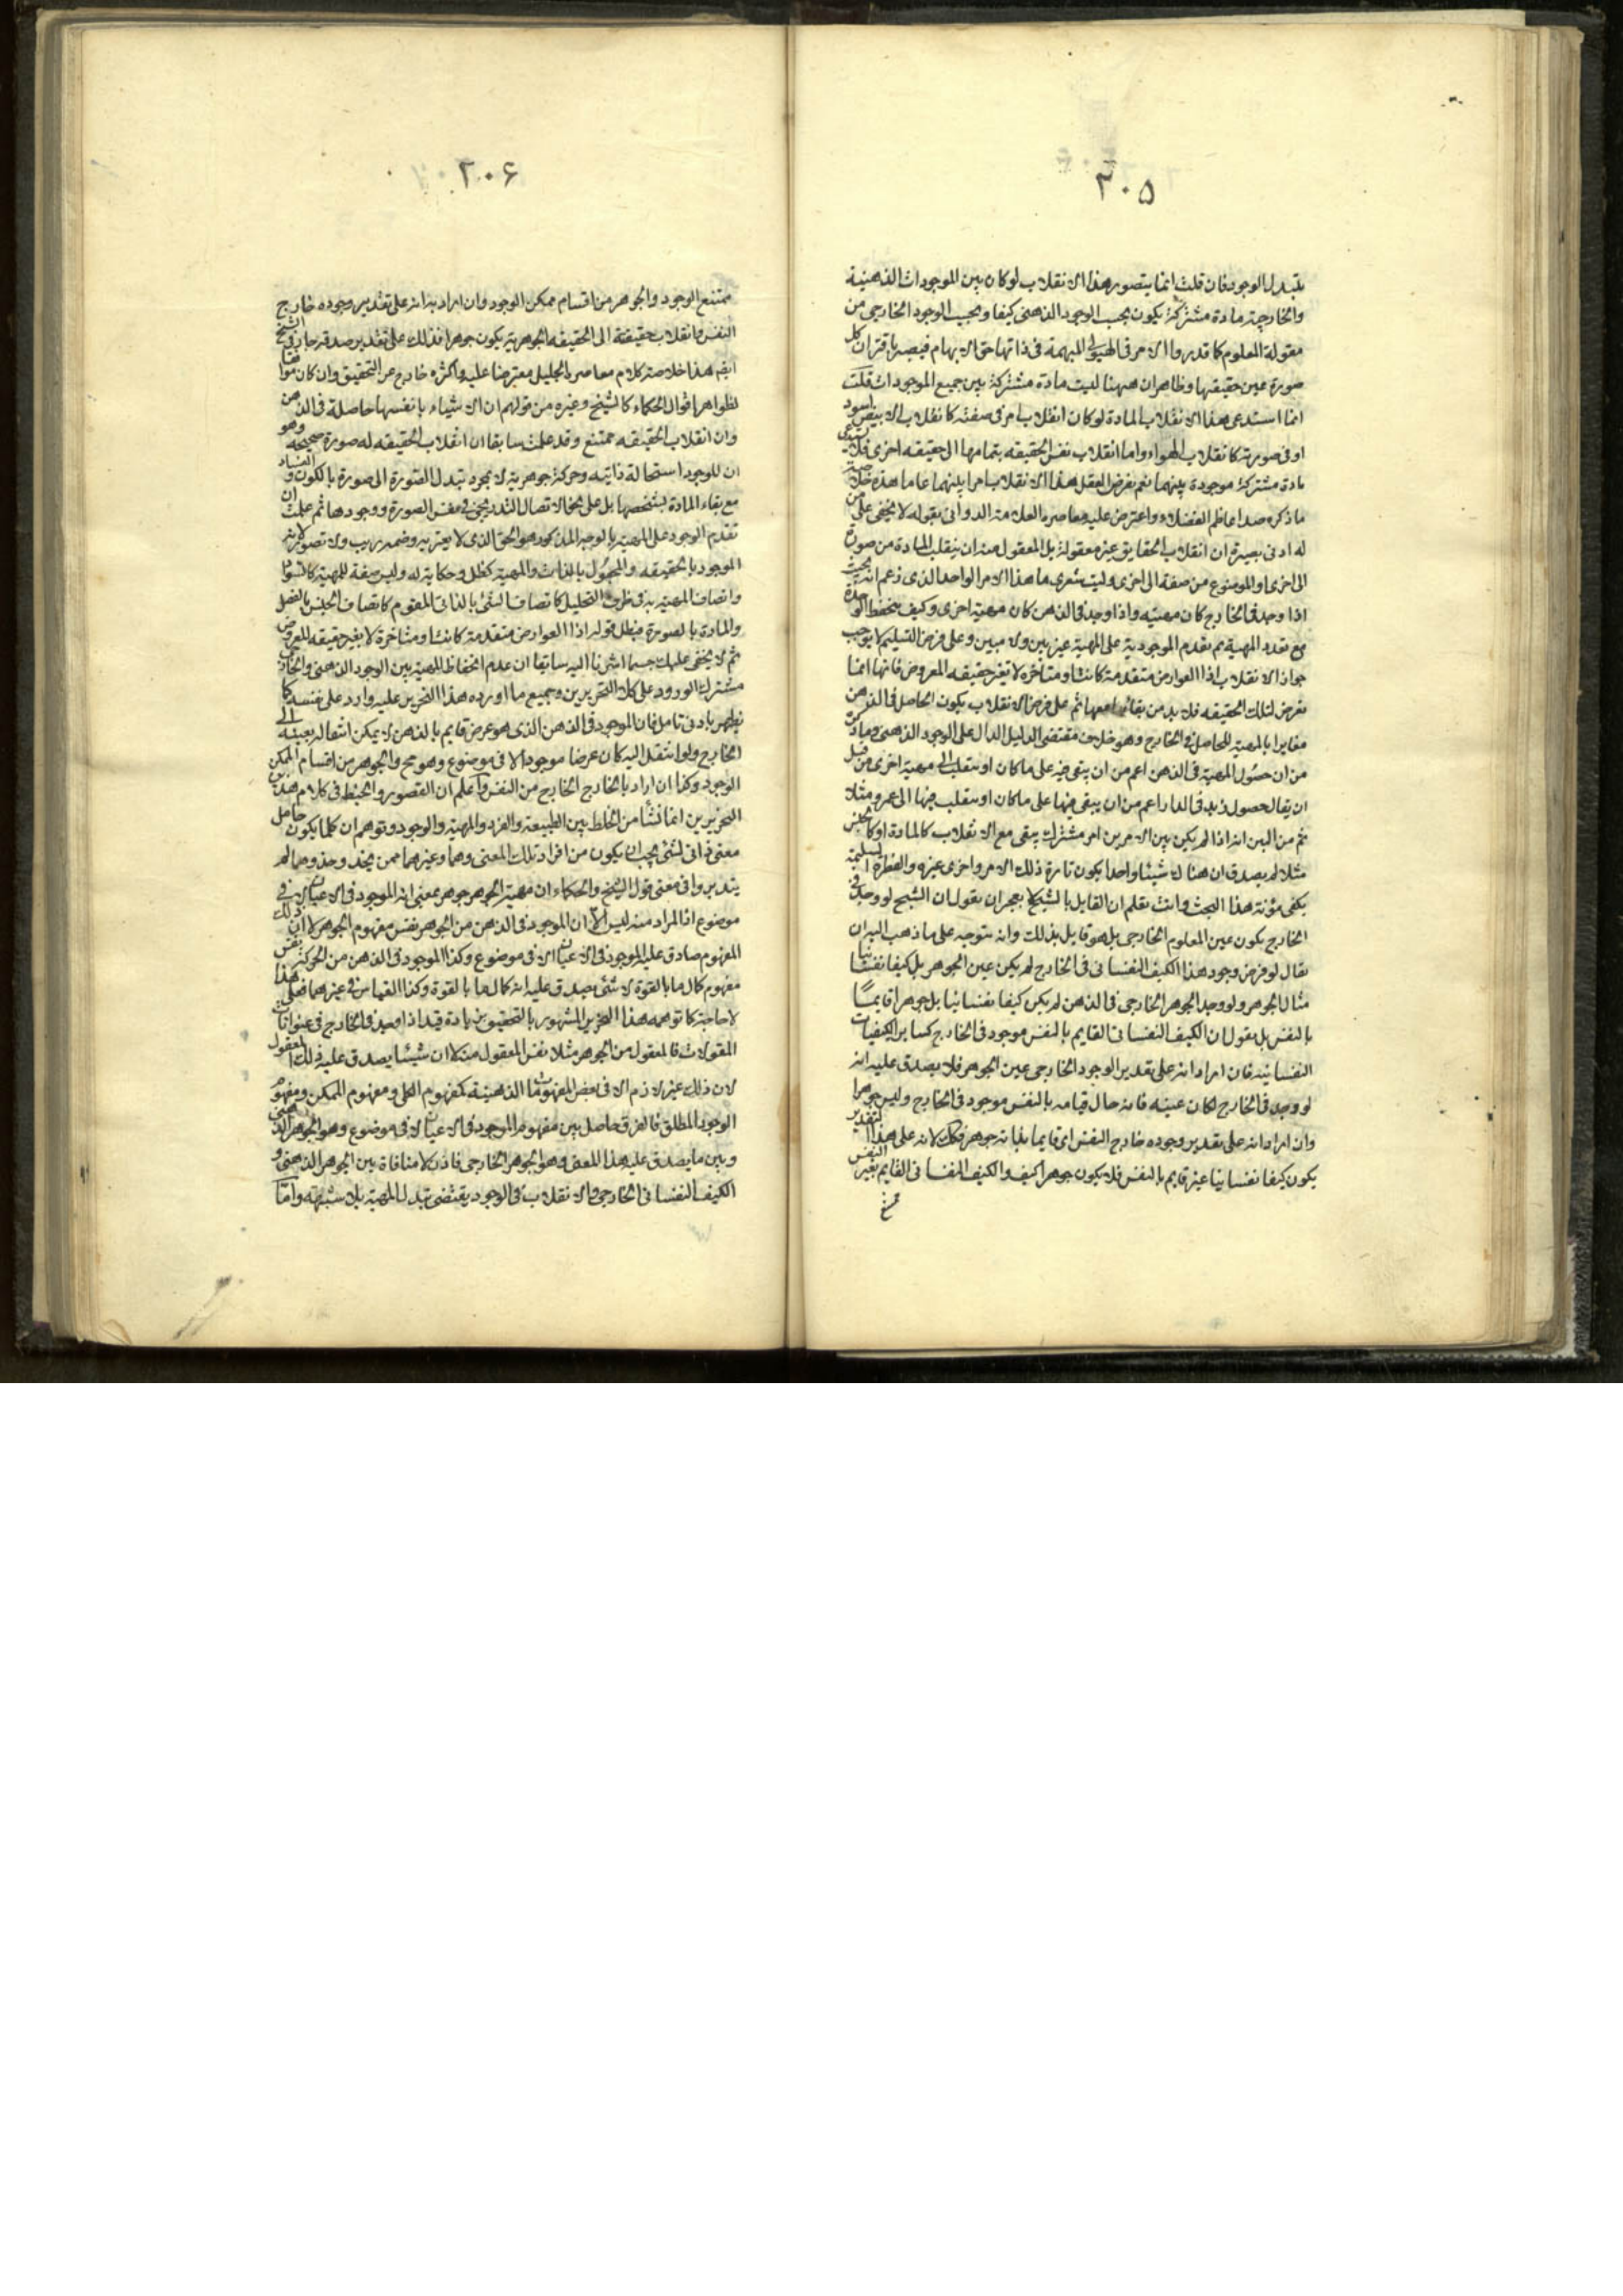 ٢٠٥
بتبدل الوجود فان قلت انما يتصور هذا الانقلاب لو كان بين الموجودات الذهنية
والخارجية مادة مشتركة يكون بحسب الوجود الذهنى كيفا وبحسب الوجود الخارجى من
مقولة المعلوم كما قدروا الامر فى الهيولى المبهمة فى ذاتها حق الابهام فيصير باقتران كل
صورة عين حقيقتها وظاهر ان ههنا ليست مادة مشتركة بين جميع الموجودات قلت
انما استدعى هذا الانقلاب المادة لو كان انقلاب امر فى صفته كانقلاب الابيض اسود
او فى صورته كانقلاب الهواء واما انقلاب نفس الحقيقه بتمامها الى حقيقه اخرى فلا يستدعى
مادة مشتركة موجودة بينهما نعم يفرض العقل لهذا الانقلاب امرا بينهما عاما هذه خلاصة
ما ذكره صدر اعاظم الفضلاء واعترض عليه معاصره العلامة الدوانى بقوله لا يخفى على من
له ادنى بصيرة ان انقلاب الحقايق غير معقولة بل المعقول منه ان ينقلب المادة من صورة
الى اخرى او الموضوع من صفة الى اخرى وليت شعرى ما هذا الامر الواحد الذى زعم انه بحيث
اذا وجد فى الخارج كان مهيته واذا وجد فى الذهن كان مهية اخرى وكيف ينحفظ الوحدة
مع تعدد المهية ثم تقدم الموجودية على المهية غير بين ولا مبين وعلى فرض التسليم لا يوجب
جواز الانقلاب اذ العوارض متقدمة كانت او متاخره لا تغير حقيقه المعروض فانها انما
تعرض لتلك الحقيقه فلا بد من بقائها معها ثم على فرض الانقلاب يكون الحاصل فى الذهن
مغايرا بالمهية للحاصل فى الخارج وهو خلاف مقتضى الدليل الدال على الوجود الذهنى وما ذكره
من ان حصول المهية فى الذهن اعم من ان يبقى فيه على ما كان او ينقلب الى مهية اخرى من قبيل
ان يقال حصول زيد فى الدار اعم من ان يبقى فيها على ما كان او ينقلب فيها الى عمرو مثلا
ثم من البين انه اذا لم يكن بين الامرين امر مشترك يبقى مع الانقلاب كالمادة او كالجنس
مثلا لم يصدق ان هناك شيئا واحدا يكون تارة ذلك الامر واخرى غيره والفطرة السليمة
يكفى مؤنة هذا البحث وانت تعلم ان القايل بالشبح لا يعجز ان يقول ان الشبح لو وجد فى
الخارج يكون عين المعلوم الخارجى بل هو قايل بذلك وانه يتوجه على ما ذهب اليه ان
يقال لو فرض وجود هذا الكيف النفسانى فى الخارج لم يكن عين الجوهر بل كيفا نفسانيا
مثال الجوهر ولو وجد الجوهر الخارجى فى الذهن لم يكن كيفا نفسانيا بل جوهرا قايما
بالنفس بل يقول ان الكيف النفسانى القايم بالنفس موجود فى الخارج كساير الكيفيات
النفسانية فان اراد انه على تقدير الوجود الخارجى عين الجوهر فلا يصدق عليه انه
لو وجد فى الخارج لكان عينه فانه حال قيامه بالنفس موجود فى الخارج وليس جوهرا
وان اراد انه على تقدير وجوده خارج النفس اى قايما بذاته جوهر فكك لانه على هذا التقدير
يكون كيفا نفسانيا غير قايم بالنفس فلا يكون جوهرا كيف والكيف النفسانى القايم بغير النفس
ممتنع
٢٠۶
ممتنع الوجود والجوهر من اقسام ممكن الوجود وان اراد به انه على تقدير وجوده خارج
النفس وانقلاب حقيقته الى الحقيقه الجوهرية يكون جوهرا فذلك على تقدير صدقه جار فى الشبح
ايضا هذا خلاصة كلام معاصره الجليل معترضا عليه واكثره خارج عن التحقيق وان كان موافقا
لظواهر اقوال الحكماء كالشيخ وغيره من قولهم ان الاشياء بانفسها حاصلة فى الذهن
وان انقلاب الحقيقه ممتنع وقد علمت سابقا ان انقلاب الحقيقه له صورة صحيحه وهو
ان للوجود استحالة ذاتيه وحركة جوهرية لا بمجرد تبدل الصورة الى صورة بالكون والفساد
مع بقاء المادة بشخصها بل على نحو الاتصال التدريجى فى نفس الصورة ووجودها ثم علمت ان
تقدم الوجود على المهية بالوجه المذكور هو الحق الذى لا يعتريه وصمة ريب ولا تصور لانه
الموجود بالحقيقه والمجعول بالذات والمهية كظل وحكاية له وليس صفة للمهية كالسواد
واتصاف المهية به فى ظرف التحليل كاتصاف الشئ بالذاتى المقوم كاتصاف الجنس بالفصل
والمادة بالصورة فبطل قوله اذ العوارض متقدمة كانت او متاخرة لا يغير حقيقه المعروض
ثم لا يخفى عليك حسبما اشرنا اليه سابقا ان عدم انحفاظ المهية بين الوجود الذهنى والخارجى
مشترك الورود على كلا التحريرين وجميع ما اورده هذا النحرير عليه وارد على نفسه كما
يظهر بادنى تامل فان الموجود فى الذهن الذى هو عرض قايم بالذهن لا يمكن انتقاله بعينه الى
الخارج ولو انتقل اليه كان عرضا موجودا لا فى موضوع وهو مح والجوهر من اقسام الممكن
الوجود وكذا ان اراد بالخارج الخارج من النفس واعلم ان القصور والخبط فى كلام هذين
النحريرين انما نشأ من الخلط بين الطبيعة والفرد والمهية والوجود وتوهم ان كلما يكون حاصل
معنى ذاتى لشئ يجب ان يكون من افراد تلك المعنى وهما وغيرهما ممن يحذو حذوهما لم
يتدبروا فى معنى قول الشيخ والحكماء ان مهية الجوهر جوهر بمعنى انه الموجود فى الاعيان لا فى
موضوع اذ المراد منه ليس الا ان الموجود فى الذهن من الجوهر نفس مفهوم الجوهر لا ان ذلك
المفهوم صادق عليه الموجود فى الاعيان لا فى موضوع وكذا الموجود فى الذهن من الحركة نفس
مفهوم كمال ما بالقوة لا شئ يصدق عليه انه كمال ما بالقوة وكذا القياس فى غيرهما فعلى هذا
لا حاجة كما توهمه هذا النحرير المشهور بالتحقيق بزيادة قيد اذا وجد فى الخارج فى عنوانات
المقولات فالمعقول من الجوهر مثلا نفس المعقول منه لا ان شيئا يصدق عليه ذلك المعقول
لان ذلك غير لازم الا فى بعض المفهومات الذهنية كمفهوم الكلى ومفهوم الممكن ومفهوم
الوجود المطلق فالفرق حاصل بين مفهوم الموجود فى الاعيان لا فى موضوع وهو الجوهر الذهنى
وبين ما يصدق عليه هذا المعنى وهو الجوهر الخارجى فاذن لا منافاة بين الجوهر الذهنى و
الكيف النفسانى الخارجى والانقلاب فى الوجود يقتضى تبدل المهية بلا شبهة واما